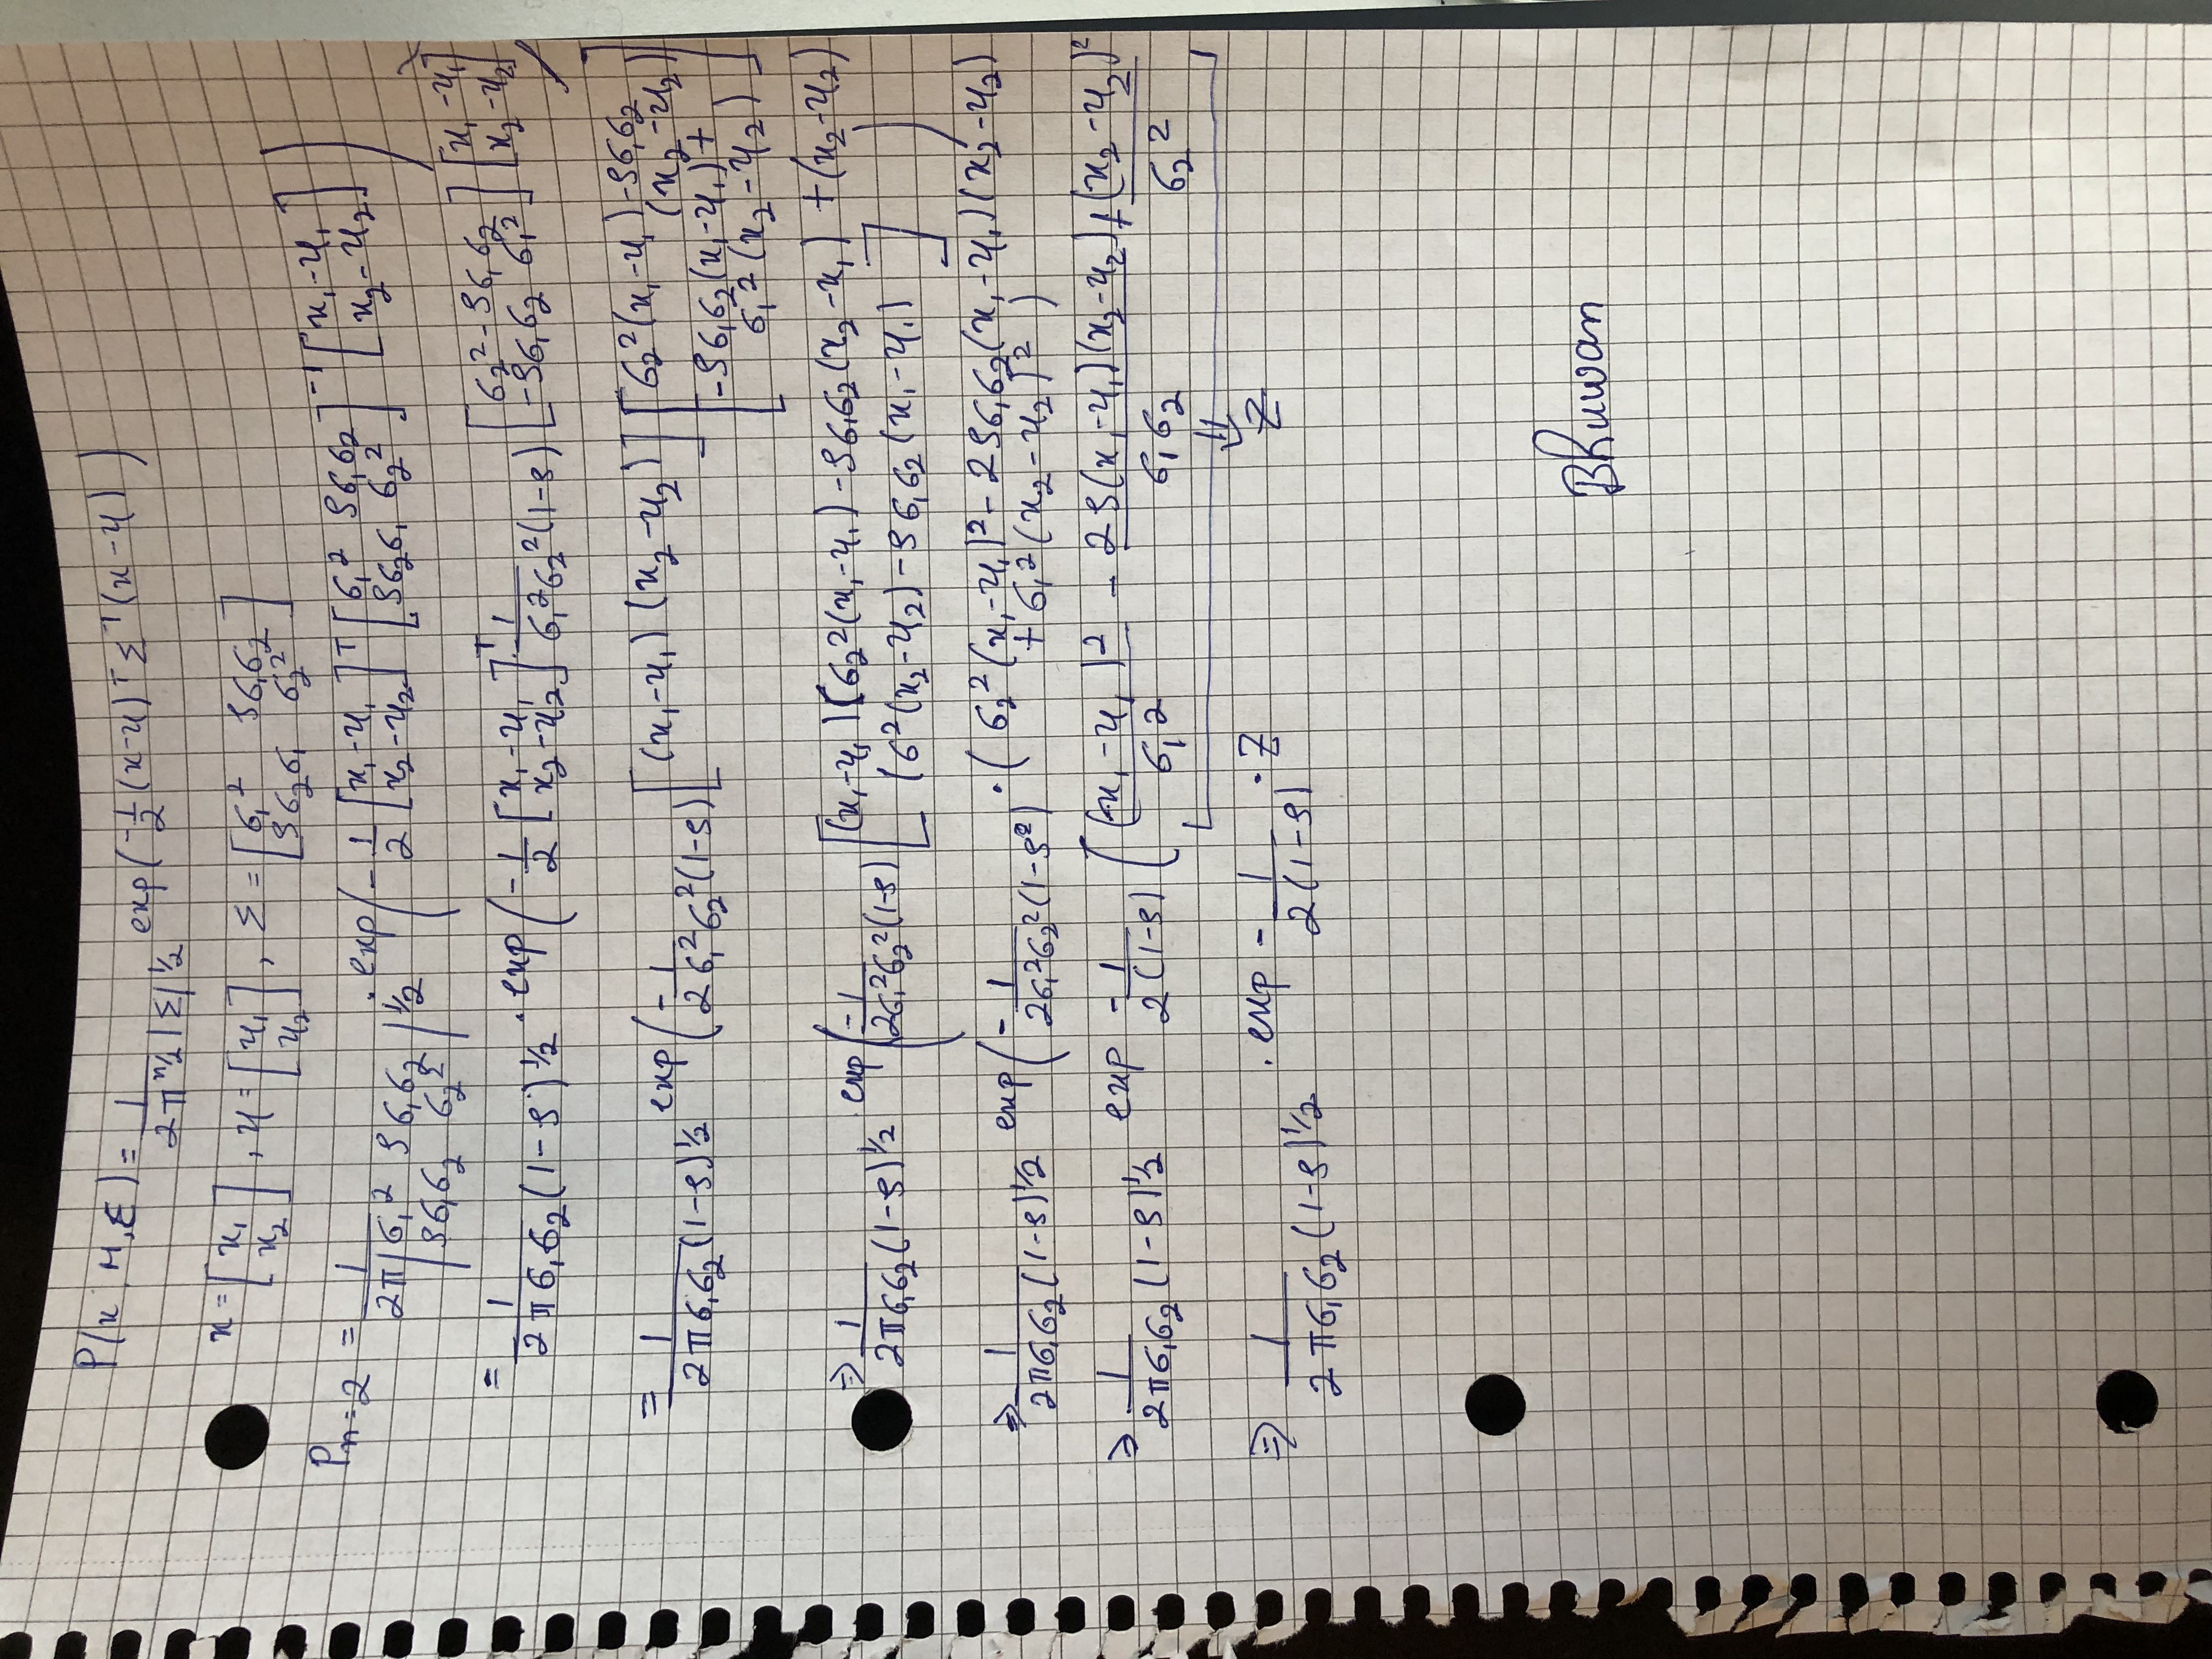 P(x, M, Σ) = 1/(2π^(n/2) |Σ|^(1/2)) exp(-1/2 (x-μ)^T Σ^-1 (x-μ))
x = [x₁ x₂], μ = [μ₁ μ₂], Σ = [σ₁² ρσ₁σ₂ ; ρσ₂σ₁ σ₂²]
P n=2 = 1/(2π |σ₁² ρσ₁σ₂ ; ρσ₁σ₂ σ₂²|^(1/2)) · exp(-1/2 [x₁-μ₁ ; x₂-μ₂]^T [σ₁² ρσ₁σ₂ ; ρσ₂σ₁ σ₂²]^-1 [x₁-μ₁ ; x₂-μ₂])
= 1/(2πσ₁σ₂(1-ρ)^(1/2)) · exp(-1/2 [x₁-μ₁ ; x₂-μ₂]^T · 1/(σ₁²σ₂²(1-ρ)) [σ₂² -ρσ₁σ₂ ; -ρσ₁σ₂ σ₁²] [x₁-μ₁ ; x₂-μ₂])
= 1/(2πσ₁σ₂(1-ρ)^(1/2)) exp(-1/(2σ₁²σ₂²(1-ρ)) [(x₁-μ₁) (x₂-μ₂)] [σ₂²(x₁-μ₁) -ρσ₁σ₂(x₂-μ₂) ; -ρσ₁σ₂(x₁-μ₁) + σ₁²(x₂-μ₂)]
⇒ 1/(2πσ₁σ₂(1-ρ)^(1/2)) · exp(-1/(2σ₁²σ₂²(1-ρ)) [(x₁-μ₁)(σ₂²(x₁-μ₁) -ρσ₁σ₂(x₂-x₁) + (x₂-μ₂)
(σ²(x₂-μ₂) -ρσ₁σ₂(x₁-μ₁)])
⇒ 1/(2πσ₁σ₂(1-ρ)^(1/2)) exp(-1/(2σ₁²σ₂²(1-ρ²)) · (σ₂²(x₁-μ₁)² - 2ρσ₁σ₂(x₁-μ₁)(x₂-μ₂)
+ σ₁²(x₂-μ₂)²)
⇒ 1/(2πσ₁σ₂(1-ρ)^(1/2)) exp -1/(2(1-ρ)) ((x₁-μ₁)²/σ₁² - 2ρ(x₁-μ₁)(x₂-μ₂)/σ₁σ₂ + (x₂-μ₂)²/σ₂²
⇓
Z
⇒ 1/(2πσ₁σ₂(1-ρ)^(1/2)) · exp -1/(2(1-ρ)) · Z
Bhuwan